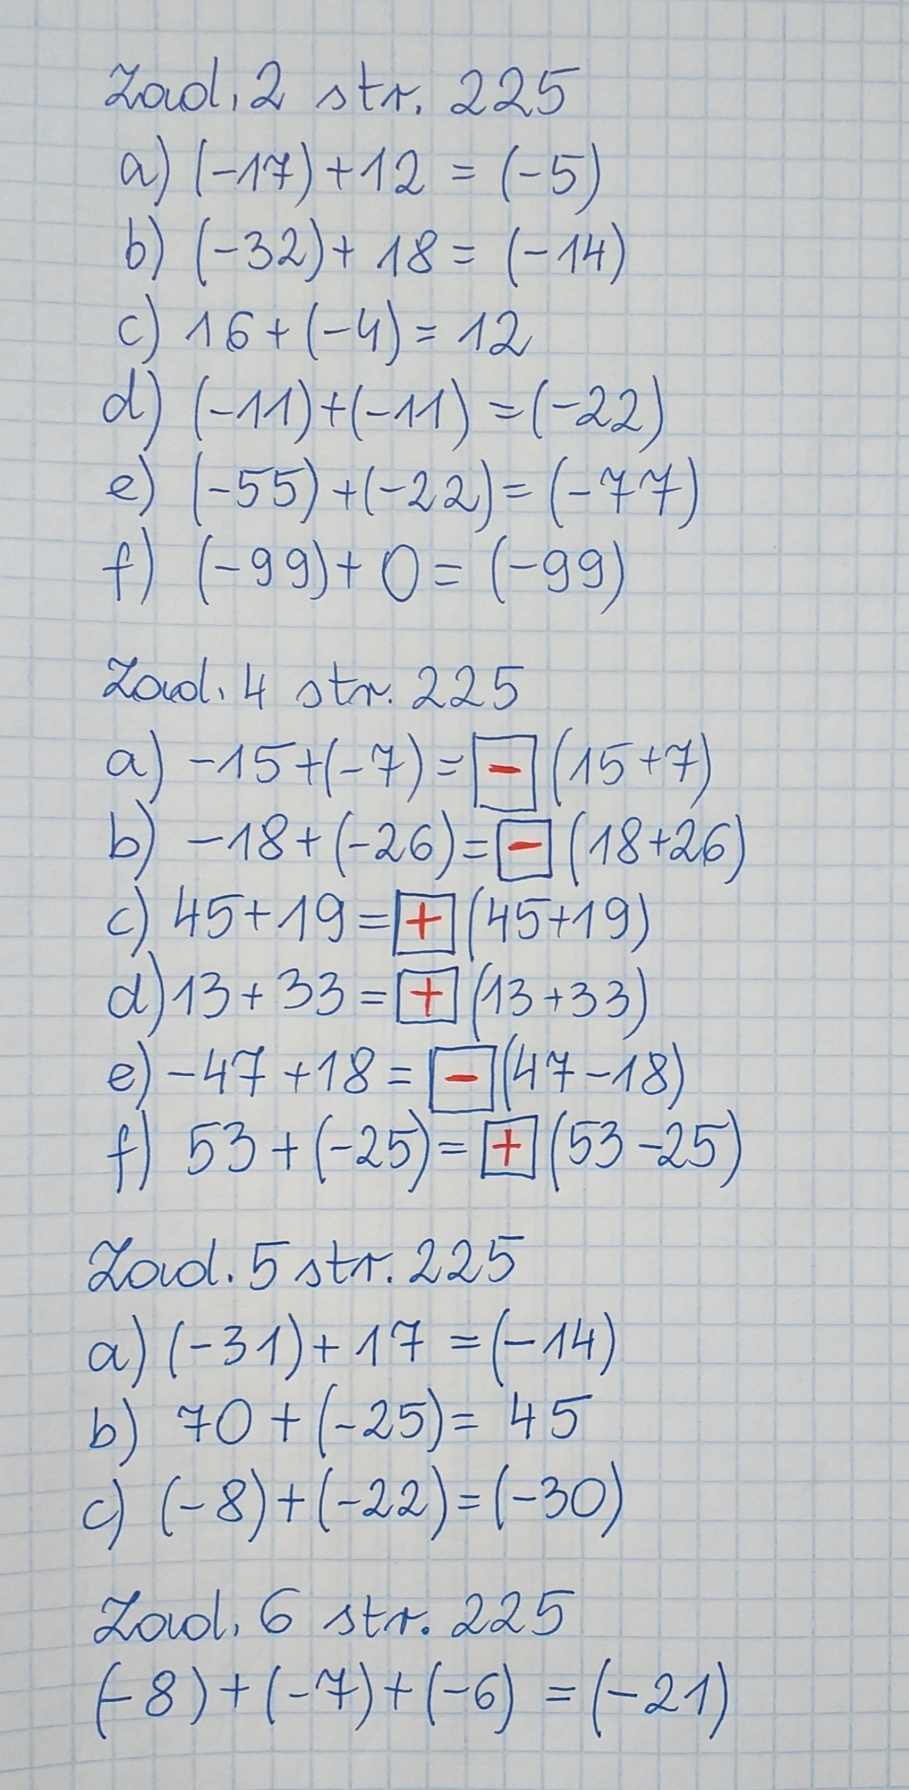 Zad. 2 str. 225
a) (-17) + 12 = (-5)
b) (-32) + 18 = (-14)
c) 16 + (-4) = 12
d) (-11) + (-11) = (-22)
e) (-55) + (-22) = (-77)
f) (-99) + 0 = (-99)
Zad. 4 str. 225
a) -15 + (-7) = - (15+7)
b) -18 + (-26) = - (18+26)
c) 45 + 19 = + (45+19)
d) 13 + 33 = + (13+33)
e) -47 + 18 = - (47-18)
f) 53 + (-25) = + (53-25)
Zad. 5 str. 225
a) (-31) + 17 = (-14)
b) 70 + (-25) = 45
c) (-8) + (-22) = (-30)
Zad. 6 str. 225
(-8) + (-7) + (-6) = (-21)